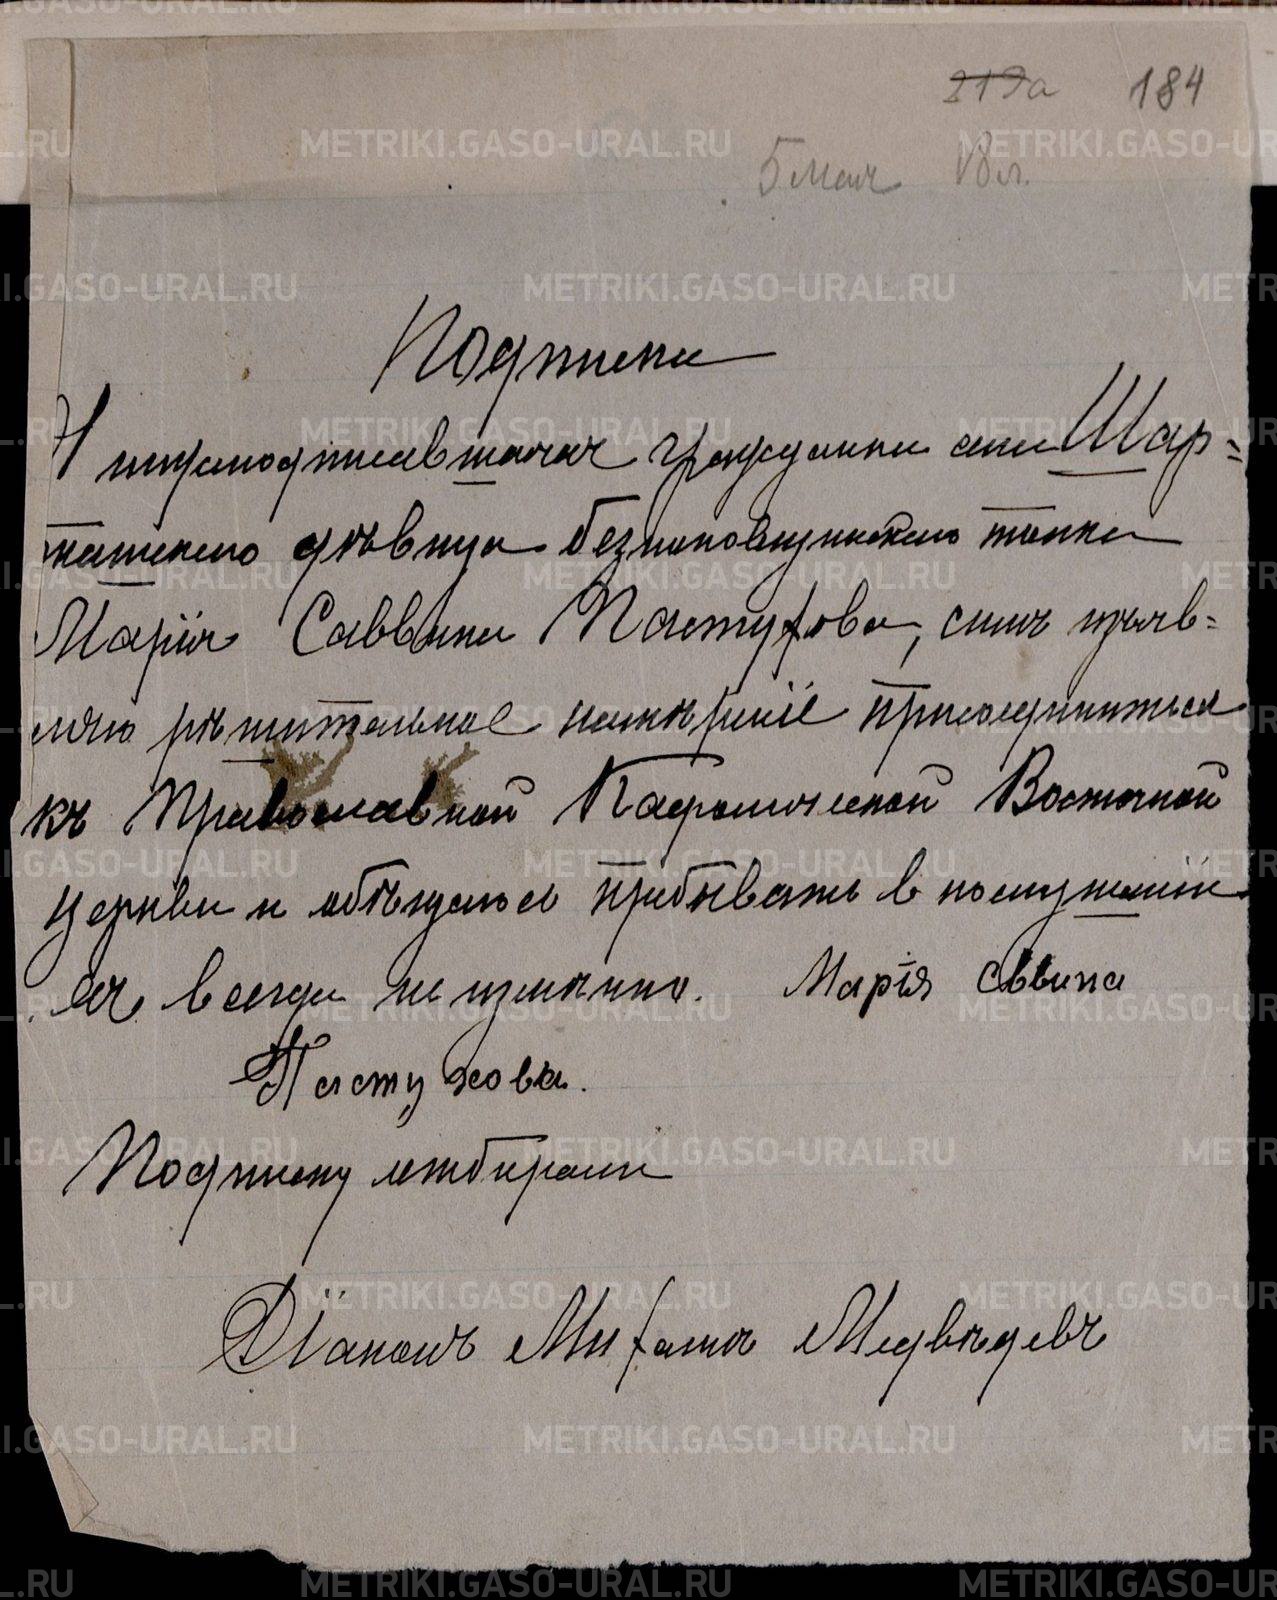 219а 184
5 мая 18 г.
Подписка
Я нижеподписавшаяся гражданка села Шар=
ташскаго дѣвица безпоповщинскаго толка
Марія Саввина Пастухова, симъ изъяв=
ляю рѣшительное намѣреніе присоединиться
къ Православной Каѳолической Восточной
церкви и обѣщаюсь пребывать в послушаніи
ея всегда неизмѣнно. Марія Сввина
Пастухова.
Подписку отбирали
Діаконъ Михаилъ Медвѣдевъ
METRIKI.GASO-URAL.RU